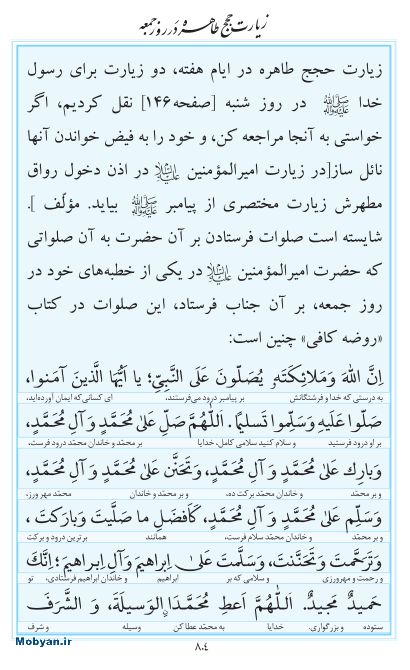 زیارت حجج طاهره در روز جمعه
زیارت حجج طاهره در ایام هفته، دو زیارت برای رسول
خدا ﷺ در روز شنبه [صفحه ۱۴۶] نقل کردیم، اگر
خواستی به آنجا مراجعه کن، و خود را به فیض خواندن آنها
نائل ساز[در زیارت امیرالمؤمنین علیه‌السلام در اذن دخول رواق
مطهرش زیارت مختصری از پیامبر ﷺ بیاید. مؤلّف ].
شایسته است صلوات فرستادن بر آن حضرت به آن صلواتی
که حضرت امیرالمؤمنین علیه‌السلام در یکی از خطبه‌های خود در
روز جمعه، بر آن جناب فرستاد، این صلوات در کتاب
«روضه کافی» چنین است:
اِنَّ اللهَ وَمَلائِکَتَهُ یُصَلّونَ عَلَی النَّبِیِّ؛ یا اَیُّهَا الَّذینَ آمَنوا،
به درستی که خدا و فرشتگانش بر پیامبر درود می‌فرستند، ای کسانی‌که ایمان آورده‌اید،
صَلّوا عَلَیهِ وَسَلِّموا تَسلیمًا. اَللّٰهُمَّ صَلِّ عَلیٰ مُحَمَّدٍ وَ آلِ مُحَمَّدٍ،
بر او درود فرستید و سلام کنید سلامی کامل، خدایا بر محمّد و خاندان محمّد درود فرست،
وَبارِك عَلیٰ مُحَمَّدٍ وَ آلِ مُحَمَّدٍ، وَتَحَنَّن عَلیٰ مُحَمَّدٍ وَ آلِ مُحَمَّدٍ،
و بر محمّد و خاندان محمّد برکت ده، و بر محمّد و خاندان محمّد مهر ورز،
وَسَلِّم عَلیٰ مُحَمَّدٍ وَ آلِ مُحَمَّدٍ، کَاَفضَلِ ما صَلَّیتَ وَبارَکتَ ،
و بر محمّد و خاندان محمّد سلام فرست، همانند برترین درود و برکت
وَتَرَحَّمتَ وَتَحَنَّنتَ، وَسَلَّمتَ عَلیٰ اِبراهیمَ وَآلِ اِبراهیمَ؛ اِنَّكَ
و رحمت و مهرورزی و سلامی که بر ابراهیم و خاندان ابراهیم فرستادی، تو
حَمیدٌ مَجیدٌ. اَللّٰهُمَّ اَعطِ مُحَمَّدًا الوَسیلَةَ، وَ الشَّرَفَ
ستوده و بزرگواری. خدایا به محمّد عطا کن وسیله و شرف
Mobyan.ir
۸۰۴